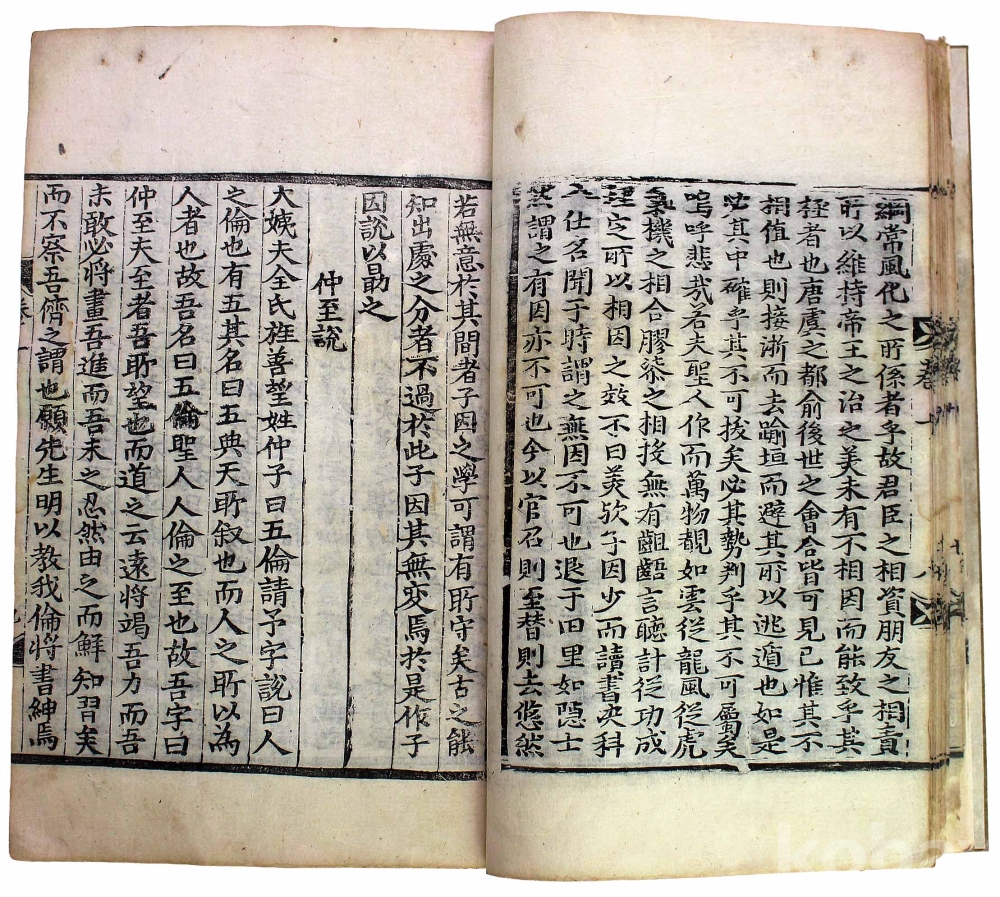 綱常風化之所係者乎故君臣之相資朋友之相責
所以維持帝王之治之美未有不相因而能致乎其
極者也唐虞之都俞後世之會合皆可見已惟其不
相值也則接淅而去踰垣而避其所以逃遁也如是
必其中確乎其不可拔矣必其勢判乎其不可屬矣
嗚呼悲哉若夫聖人作而萬物覩如雲從龍風從虎
氣機之相合膠漆之相投無有齟齬言聽計從功成
理定所以相因之效不曰美歟子因少而讀書决科
入仕名聞于時謂之無因不可也退于田里如隱士
然謂之有因亦不可也今以官召則至替則去悠然
若無意於其間者子因之學可謂有所守矣古之能
知出處之分者不過於此子因其無変焉於是作子
因說以勗之
仲至說
大姨夫全氏旌善望姓仲子曰五倫請予字說曰人
之倫也有五其名曰五典天所叙也而人之所以為
人者也故吾名曰五倫聖人人倫之至也故吾字曰
仲至夫至者吾所望也而道之云遠將竭吾力而吾
未敢必將畫吾進而吾未之忍然由之而鮮知習矣
而不察吾儕之謂也願先生明以教我倫將書紳焉